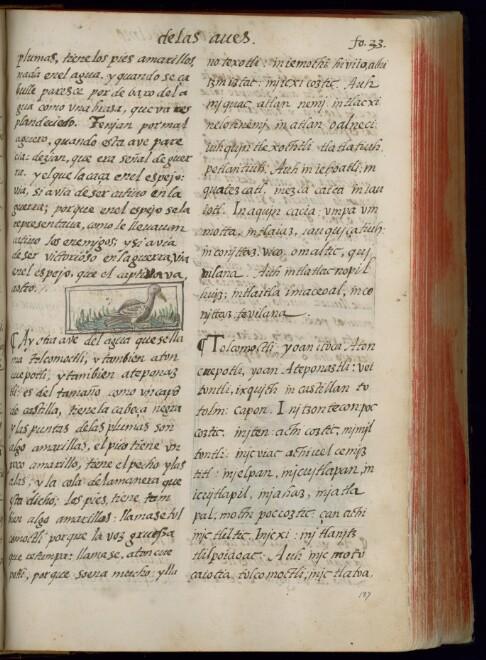 de las aues.
fo. 33.
plumas, tiene los pies amarillos,
nada en el agua, y quando se ça
bulle paresce por de baxo del a
gua como vna brasa, que va res
plandeciẽdo. Tenjan por mal
aguero, quando esta ave pare
cia: dezian, que era señal de guer
ra. y el que la caça en el espejo:
via, si auia de ser cativo en la
guerra; porque en el espejo se le
representaua, como le lleuauan
cativo los enemigos; y si avia
de ser victorioso en la guerra, via
en el espejo, que el captivava,
a otro.
¶Ay otra ave del agua que se lla
ma tolcomoctli, y tambien aton
cuepotli, y tambien ateponaz
tli: es del tamaño, como vn capõ
de castilla, tiene la cabeça negra
y las puntas de las plumas son
algo amarillas, el pico tiene vn
poco amarillo, tiene el pecho y las
alas, y la cola de la manera que
esta dicho: los pies, tiene tam
bien algo amarillos: llamase tol
comoctli porque la voz gruessa
que retumpa: llamase, atoncue
potli, porque suena mucho: y lla
no texotli: injemothi
iztac: injcxi coztic. Auh
injquac atlan nemj, intlacxi
neloti nemj, in atlan oalneci
iuhqujn tlexochtli tlatlatiuh,
petlantiuh. Auh in icpoatl: in
quatezcatl, nezca catca in iau
iotl. In aqujn cacia: vmpa vm
motta, in tlaiaz, in aujcatiuh:
in conjttaz. vico. omaltic, quj
vilana. Auh in tlatlac
intlaitla imaceoal, in co
njttaz tovilana.
¶Tolcomoctli, yoan itoca. Aton
cuepotli, yoan. Ateponaztli: vei
tontli, ixqujch in castillan to
tolin: capon. Injtzontecon poc
coztic. injten: achi coztic, mjmjl
tontli: injc viac achi vel cemjz
titl: injelpan, injcujtlapan, in
icujtlapil, injahaz, injatla
pal: mochi poccoztic. çan achi
njc tliltic. Injcxi: injtlanjtz
tlilpoiaoac. Auh injc motv
caiotia tolcomoctli, injc tlatva,
187